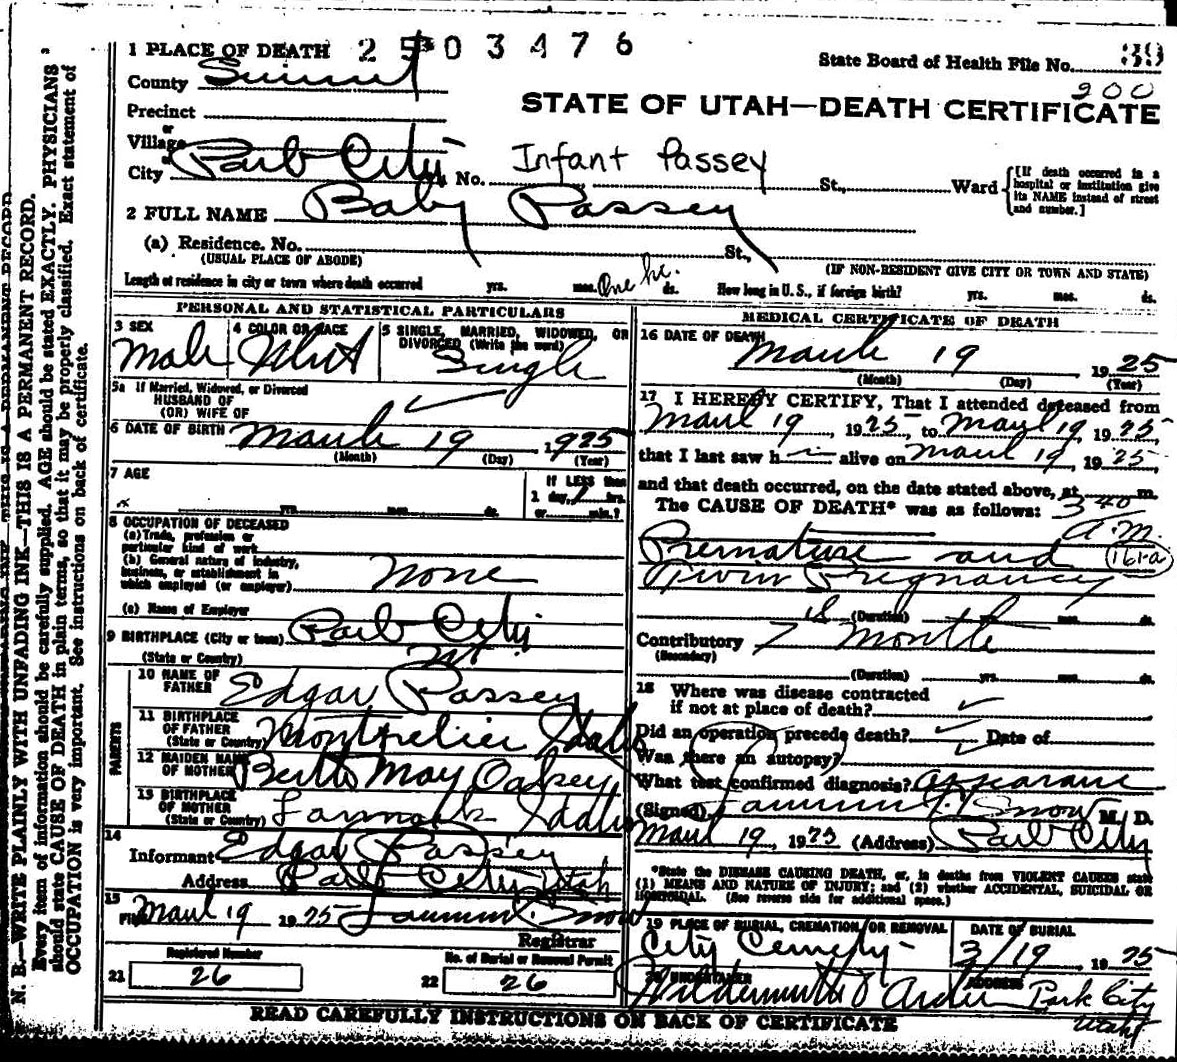 1 PLACE OF DEATH 2503476
State Board of Health File No. 39
County Summit
200
STATE OF UTAH—DEATH CERTIFICATE
Precinct
or
Village
or
City Park City No. Infant Passey St., Ward
[If death occurred in a hospital or institution give its NAME instead of street and number.]
2 FULL NAME Baby Passey
(a) Residence. No. St.,
(USUAL PLACE OF ABODE) (IF NON-RESIDENT GIVE CITY OR TOWN AND STATE)
Length of residence in city or town where death occurred yrs. mos. One hr. ds. How long in U. S., if foreign birth? yrs. mos. ds.
PERSONAL AND STATISTICAL PARTICULARS
3 SEX 4 COLOR OR RACE 5 SINGLE, MARRIED, WIDOWED, OR
DIVORCED (Write the word)
Male White Single
5a If Married, Widowed, or Divorced
HUSBAND OF
(OR) WIFE OF
6 DATE OF BIRTH March 19 1925
(Month) (Day) (Year)
7 AGE If LESS than
1 day, 1 hrs.
yrs. mos. ds. or min.?
8 OCCUPATION OF DECEASED
(a) Trade, profession or
particular kind of work
(b) General nature of industry,
business, or establishment in
which employed (or employer) none
(c) Name of Employer
9 BIRTHPLACE (City or town) Park City
(State or Country) Ut.
PARENTS
10 NAME OF
FATHER Edgar Passey
11 BIRTHPLACE
OF FATHER
(State or Country) Montpelier Idaho
12 MAIDEN NAME
OF MOTHER Berth May Oakey
13 BIRTHPLACE
OF MOTHER
(State or Country) Idaho
14
Informant Edgar Passey
Address Park City Utah
15
Filed March 19 1925 Snow
Registrar
Registered Number No. of Burial or Removal Permit
21 26 22 26
MEDICAL CERTIFICATE OF DEATH
16 DATE OF DEATH
March 19 1925
(Month) (Day) (Year)
17 I HEREBY CERTIFY, That I attended deceased from
March 19, 1925, to March 19 1925
that I last saw h i alive on March 19, 1925,
and that death occurred, on the date stated above, at 340 m.
The CAUSE OF DEATH* was as follows: A.M.
Premature and 161-a
Twin Pregnancy
(Duration) yrs. mos. ds.
Contributory 7 months
(Secondary)
(Duration) yrs. mos. ds.
18 Where was disease contracted
if not at place of death?
Did an operation precede death? Date of
Was there an autopsy?
What test confirmed diagnosis? appearance
(Signed) Snow M. D.
March 19, 1925 (Address) Park City
*State the DISEASE CAUSING DEATH, or, in deaths from VIOLENT CAUSES state
(1) MEANS AND NATURE OF INJURY; and (2) whether ACCIDENTAL, SUICIDAL OR
HOMICIDAL. (See reverse side for additional space.)
19 PLACE OF BURIAL, CREMATION, OR REMOVAL DATE OF BURIAL
City Cemety 3/19, 1925
20 UNDERTAKER ADDRESS
Park City
Utah
READ CAREFULLY INSTRUCTIONS ON BACK OF CERTIFICATE
N. B.—WRITE PLAINLY WITH UNFADING INK—THIS IS A PERMANENT RECORD.
Every item of information should be carefully supplied. AGE should be stated EXACTLY. PHYSICIANS
should state CAUSE OF DEATH in plain terms, so that it may be properly classified. Exact statement of
OCCUPATION is very important. See instructions on back of certificate.